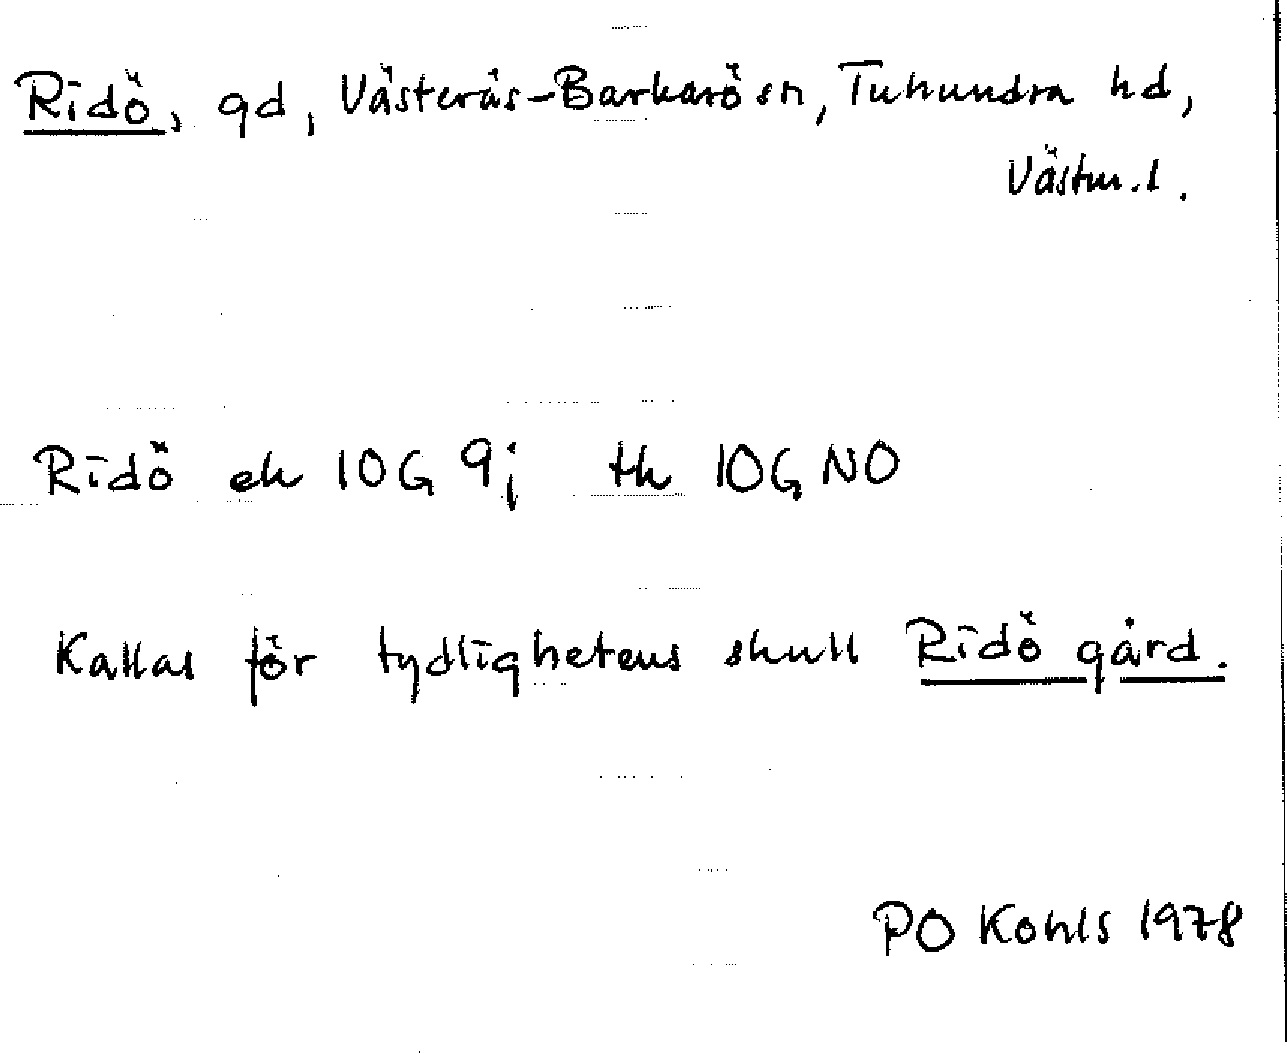 Ridö, gd, Västerås-Barkarö sn, Tuhundra hd,
Västm.l.
Ridö ek 10G 9j tk 10G NO
Kallas för tydlighetens skull Ridö gård.
PO Kohls 1978